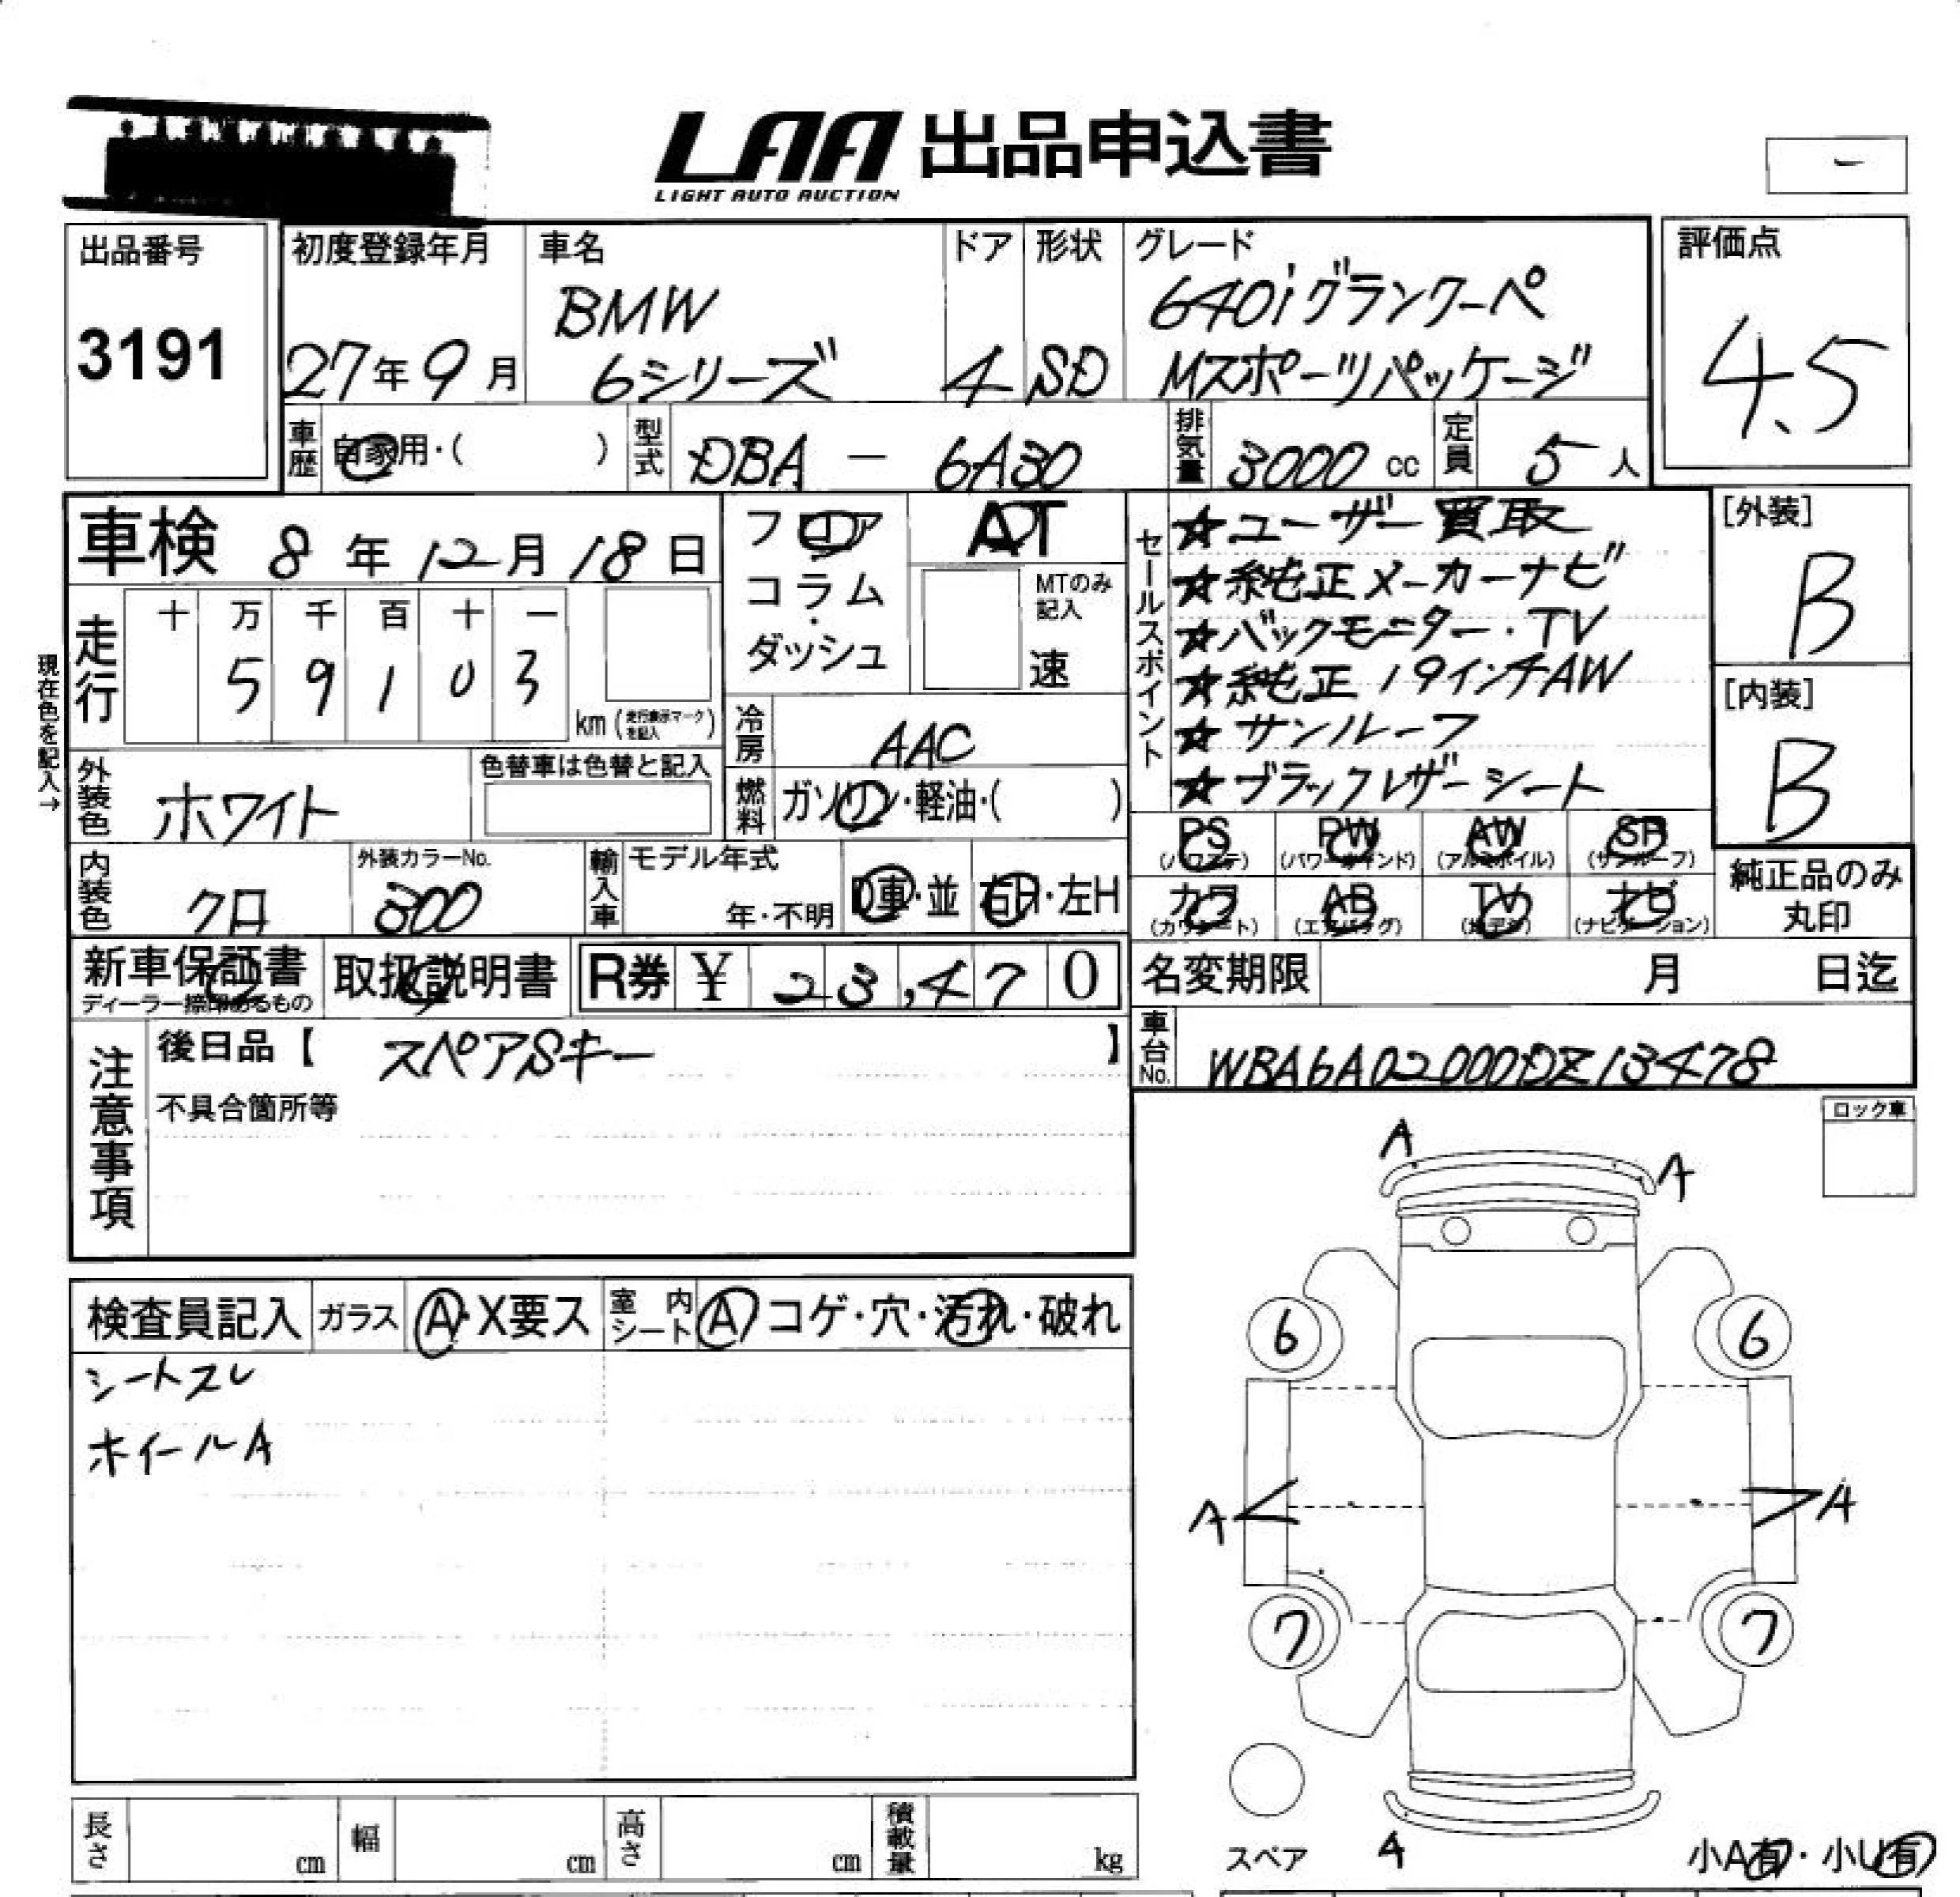 LAA 出品申込書
LIGHT AUTO AUCTION
ー
出品番号
3191
初度登録年月
27年9月
車名
BMW
6シリーズ
ドア
4
形状
SD
グレード
640iグランクーペ
Mスポーツパッケージ
評価点
4.5
車歴 自家用・( )
型式 DBA - 6A30
排気量 3000 cc
定員 5人
車検 8年12月18日
フロア
コラム・
ダッシュ
AT
MTのみ
記入
速
セールスポイント
☆ユーザー買取
☆純正メーカーナビ
☆バックモニター・TV
☆純正19インチAW
☆サンルーフ
☆ブラックレザーシート
[外装]
B
[内装]
B
現在色を記入→
走行
十 万 千 百 十 一
5 9 1 0 3
km(走行表示マークを記入)
冷房 AAC
燃料 ガソリン・軽油・( )
外装色 ホワイト
色替車は色替と記入
PS (パワステ)
PW (パワーウインド)
AW (アルミホイル)
SR (サンルーフ)
カワ (カワシート)
AB (エアバッグ)
TV (地デジ)
ナビ (ナビゲーション)
純正品のみ
丸印
内装色 クロ
外装カラーNo.
300
輸入車
モデル年式
年・不明
D車・並
右H・左H
新車保証書
ディーラー捺印あるもの
取扱説明書
R券 ¥ 23,470
名変期限 月 日迄
車台No. WBA6A02000DZ13478
注意事項
後日品【 スペアSキー 】
不具合箇所等
ロック車
A
A
6
6
A
A
7
7
検査員記入
ガラス A・X要ス
室内シート A コゲ・穴・汚れ・破れ
シートスレ
ホイールA
長さ cm
幅 cm
高さ cm
積載量 kg
スペア
4
小A有・小U有